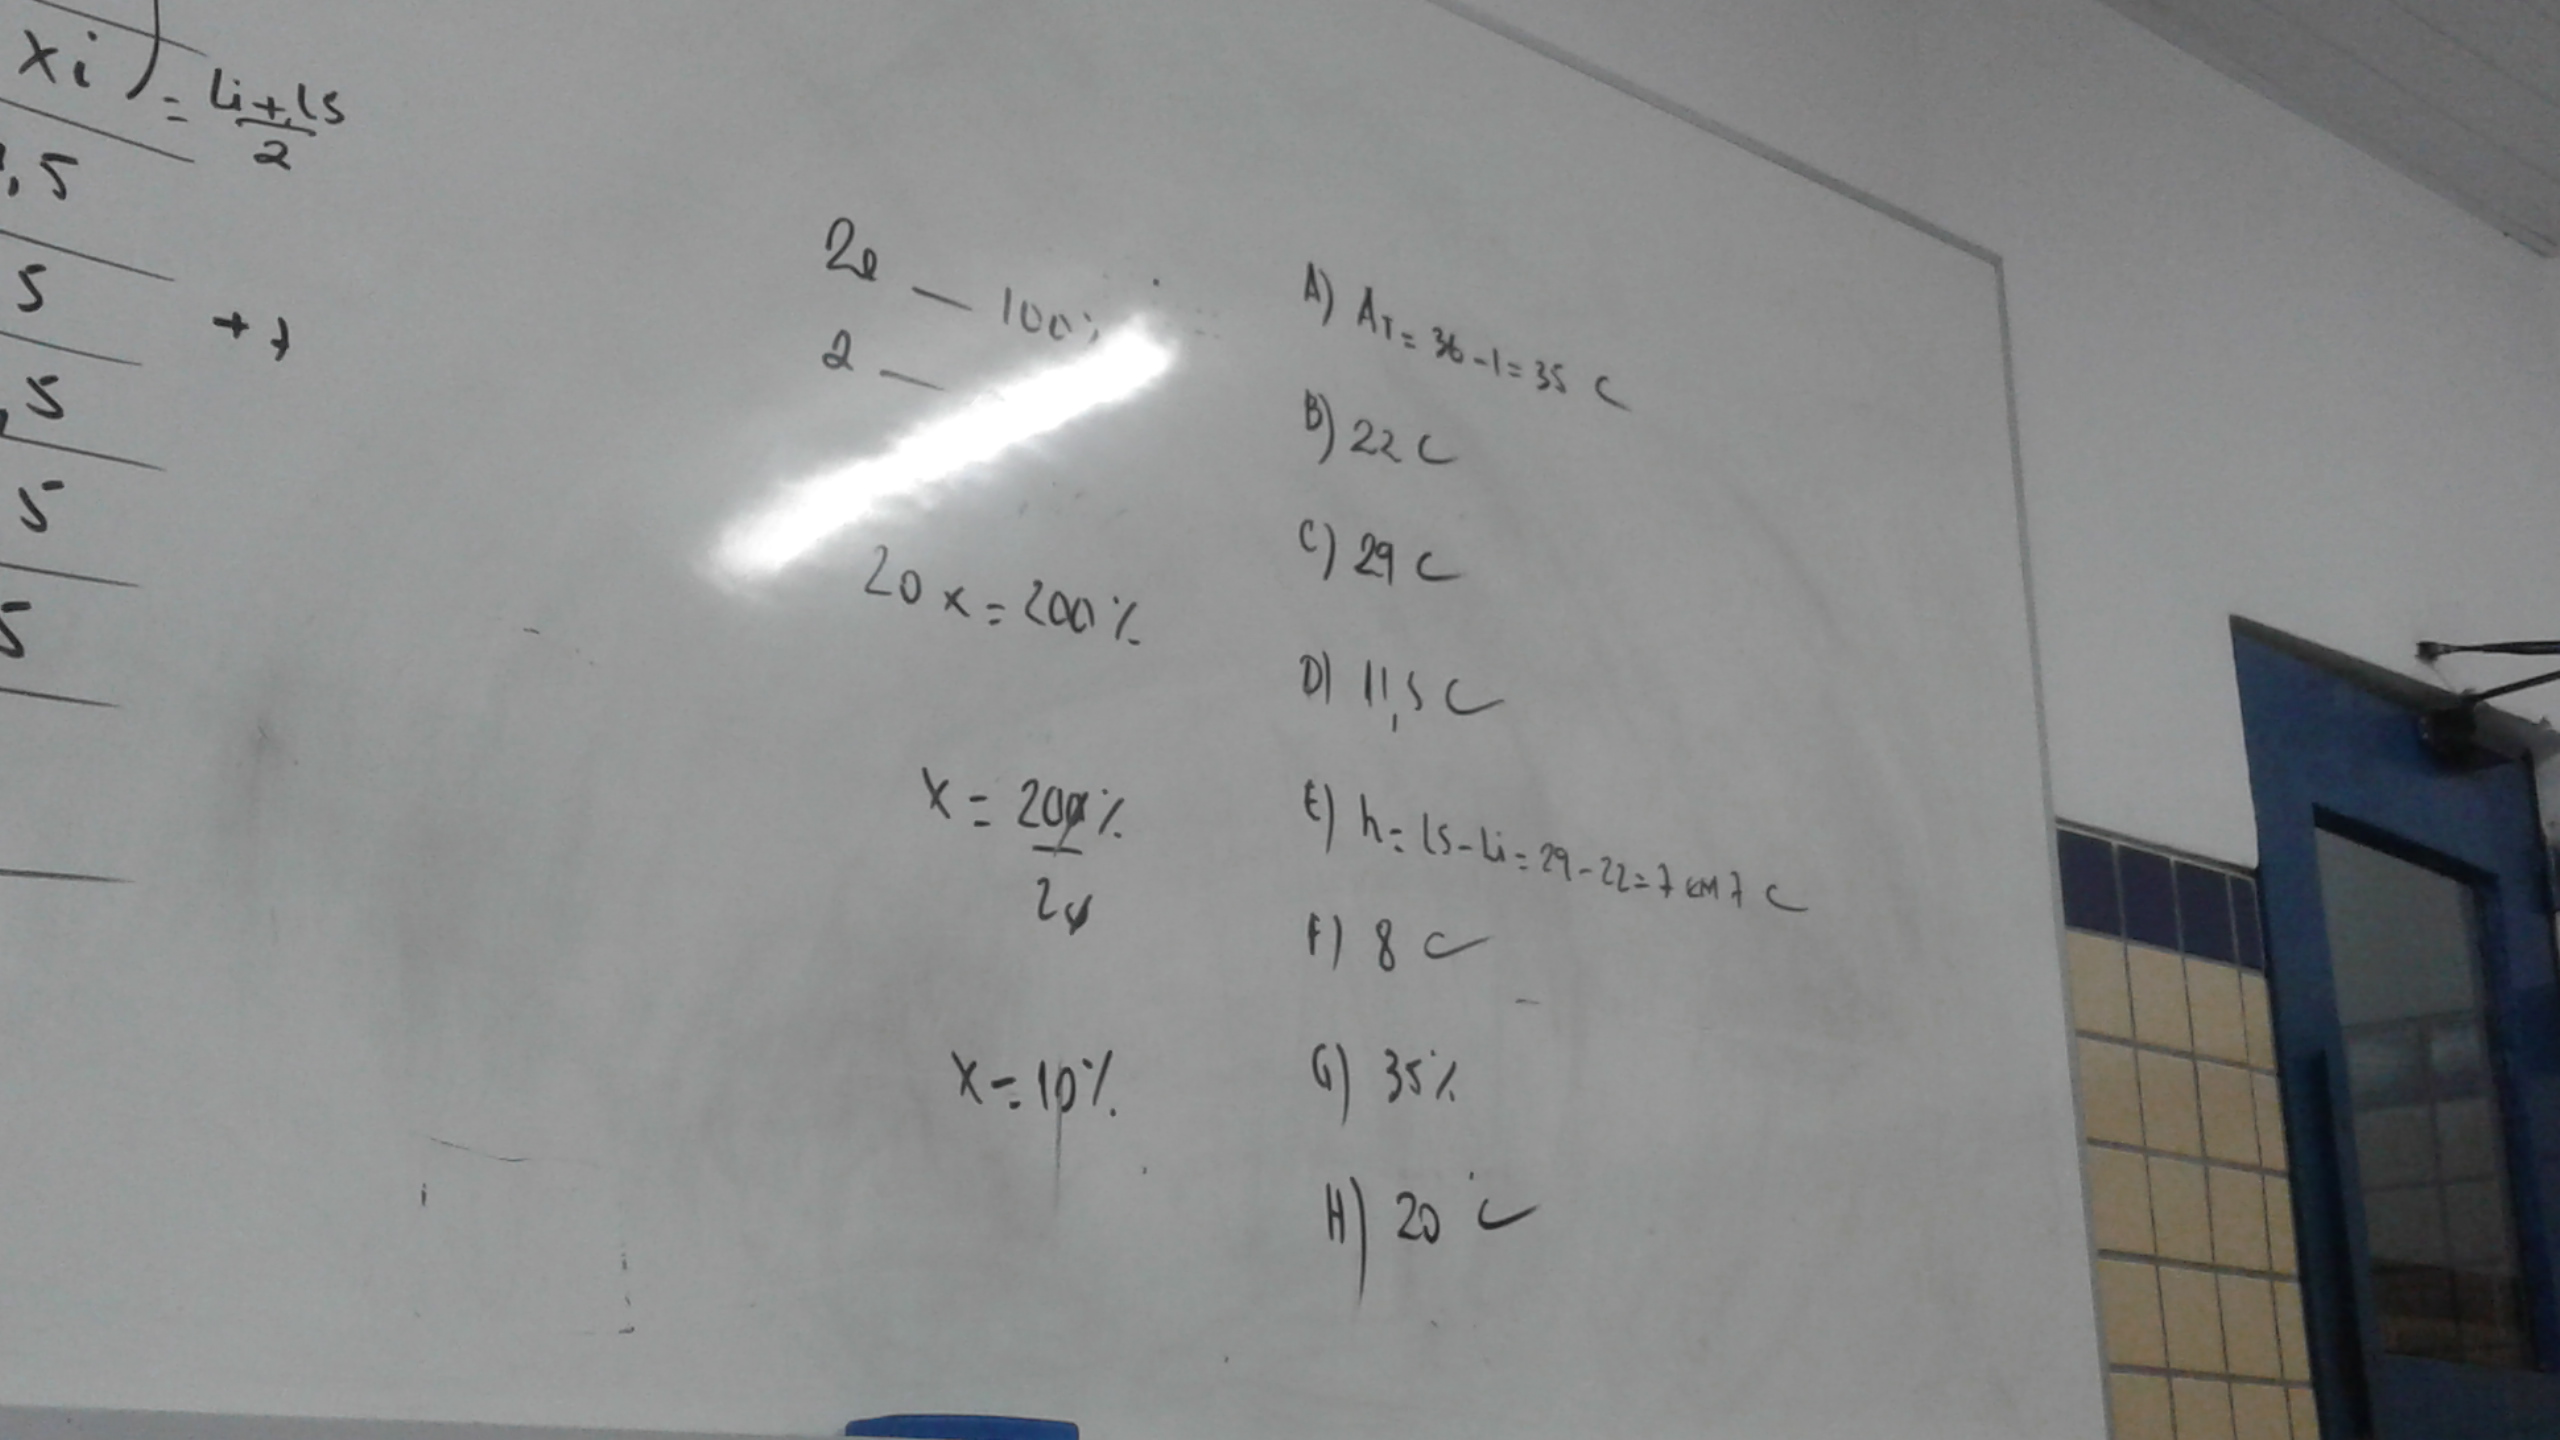 xi) = Li+Ls
2
,5
5
+7
5
5
5
20 — 100%
2 —
20x = 200%
x = 200%
20
x = 10%
A) AT = 36-1 = 35 C
B) 22 C
C) 29 C
D) 11,5 C
E) h = Ls-Li = 29-22 = 7 EM 7 C
F) 8 C
G) 35%
H) 20 C